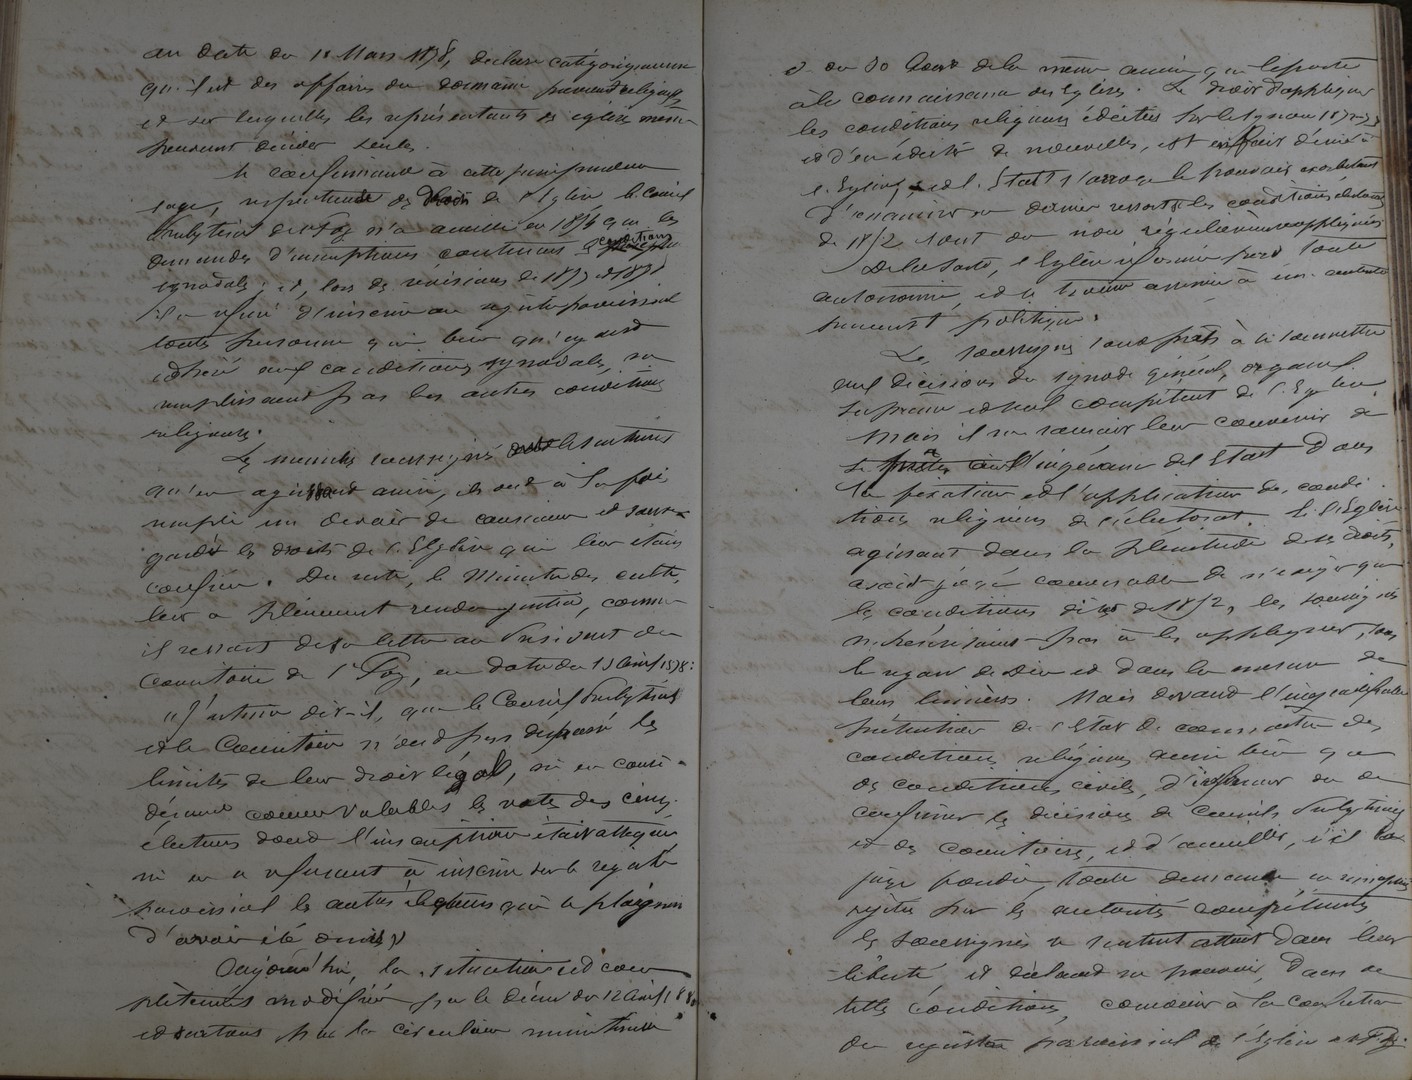 en date du 18 Mars 1878, déclare catégoriquement
qu'il est des affaires du domaine purement religieux
et sur lesquelles les représentants des églises même
peuvent décider seules.
Et conformément à cette jurisprudence
sage, respectueuse des droits de l'Eglise le Conseil
Presbytéral de Ste Foy n'a accueilli en 1874 que les
demandes d'inscriptions contenues conditions
synodales; et, lors des révisions de 1877 et 1878
il a refusé d'inscrire au registre paroissial
toute personne qui bien qu'ayant
adhéré aux conditions synodales, ne
remplissaient pas les autres conditions
religieuses.
Les membres soussignés ont le sentiment
qu'en agissant ainsi, ils ont à la fois
rempli un devoir de conscience et sauve-
gardé les droits de l'Eglise qui leur étaient
confiés. Du reste, le Ministre des cultes
leur a pleinement rendu justice, comme
il ressort de sa lettre au Président du
Consistoire de Ste Foy, en date du 13 Avril 1878:
"J'estime dit-il, que le Conseil Presbytéral
et le Consistoire n'ont pas dépassé les
limites de leur droit légal, ni en consi-
dérant comme valables les votes des cinq
électeurs dont l'inscription était attaquée
ni en refusant à inscrire sur le registre
paroissial les autres électeurs qui se plaignent
d'avoir été omis"
Aujourd'hui, la situation est com-
plètement modifiée par le décret du 12 Avril 1880
et surtout par la circulaire ministérielle
du 30 Août de la même année qui l'a porté
à la connaissance des Eglises. Le droit d'appliquer
les conditions religieuses édictées par le Synode 1872
et d'en édicter de nouvelles, est en fait dénié à
l'Eglise, et l'Etat s'arroge le pouvoir exorbitant
d'examiner en dernier ressort si les conditions
de 1872 sont ou non régulièrement appliquées
De la sorte, l'Eglise réformée perd toute
autonomie, et se trouve asservie à une autorité
purement politique.
Les soussignés sont prêts à se soumettre
aux décisions du synode général, organe
suprême et seul compétent de l'Eglise
Mais il ne saurait leur convenir de
se prêter à l'ingérence de l'Etat dans
la fixation et l'application des condi-
tions religieuses de l'électorat. Si l'Eglise
agissant dans la plénitude de ses droits,
avait jugé convenable de n'exiger que
les conditions dites de 1872, les soussignés
n'hésiteraient pas à les appliquer, sous
le regard de Dieu et dans la mesure de
leurs lumières. Mais devant l'inqualifiable
prétention de l'Etat de connaître des
conditions religieuses aussi bien que
des conditions civiles, d'infirmer ou de
confirmer les décisions des Conseils Presbytéraux
et des Consistoires, et d'accueillir, s'il la
juge fondée, toute demande en inscription
rejetée par les autorités compétentes
les soussignés se sentent atteints dans leur
liberté et déclarent ne pouvoir, dans de
telles conditions, concourir à la confection
du registre paroissial de l'Eglise de Ste Foy.